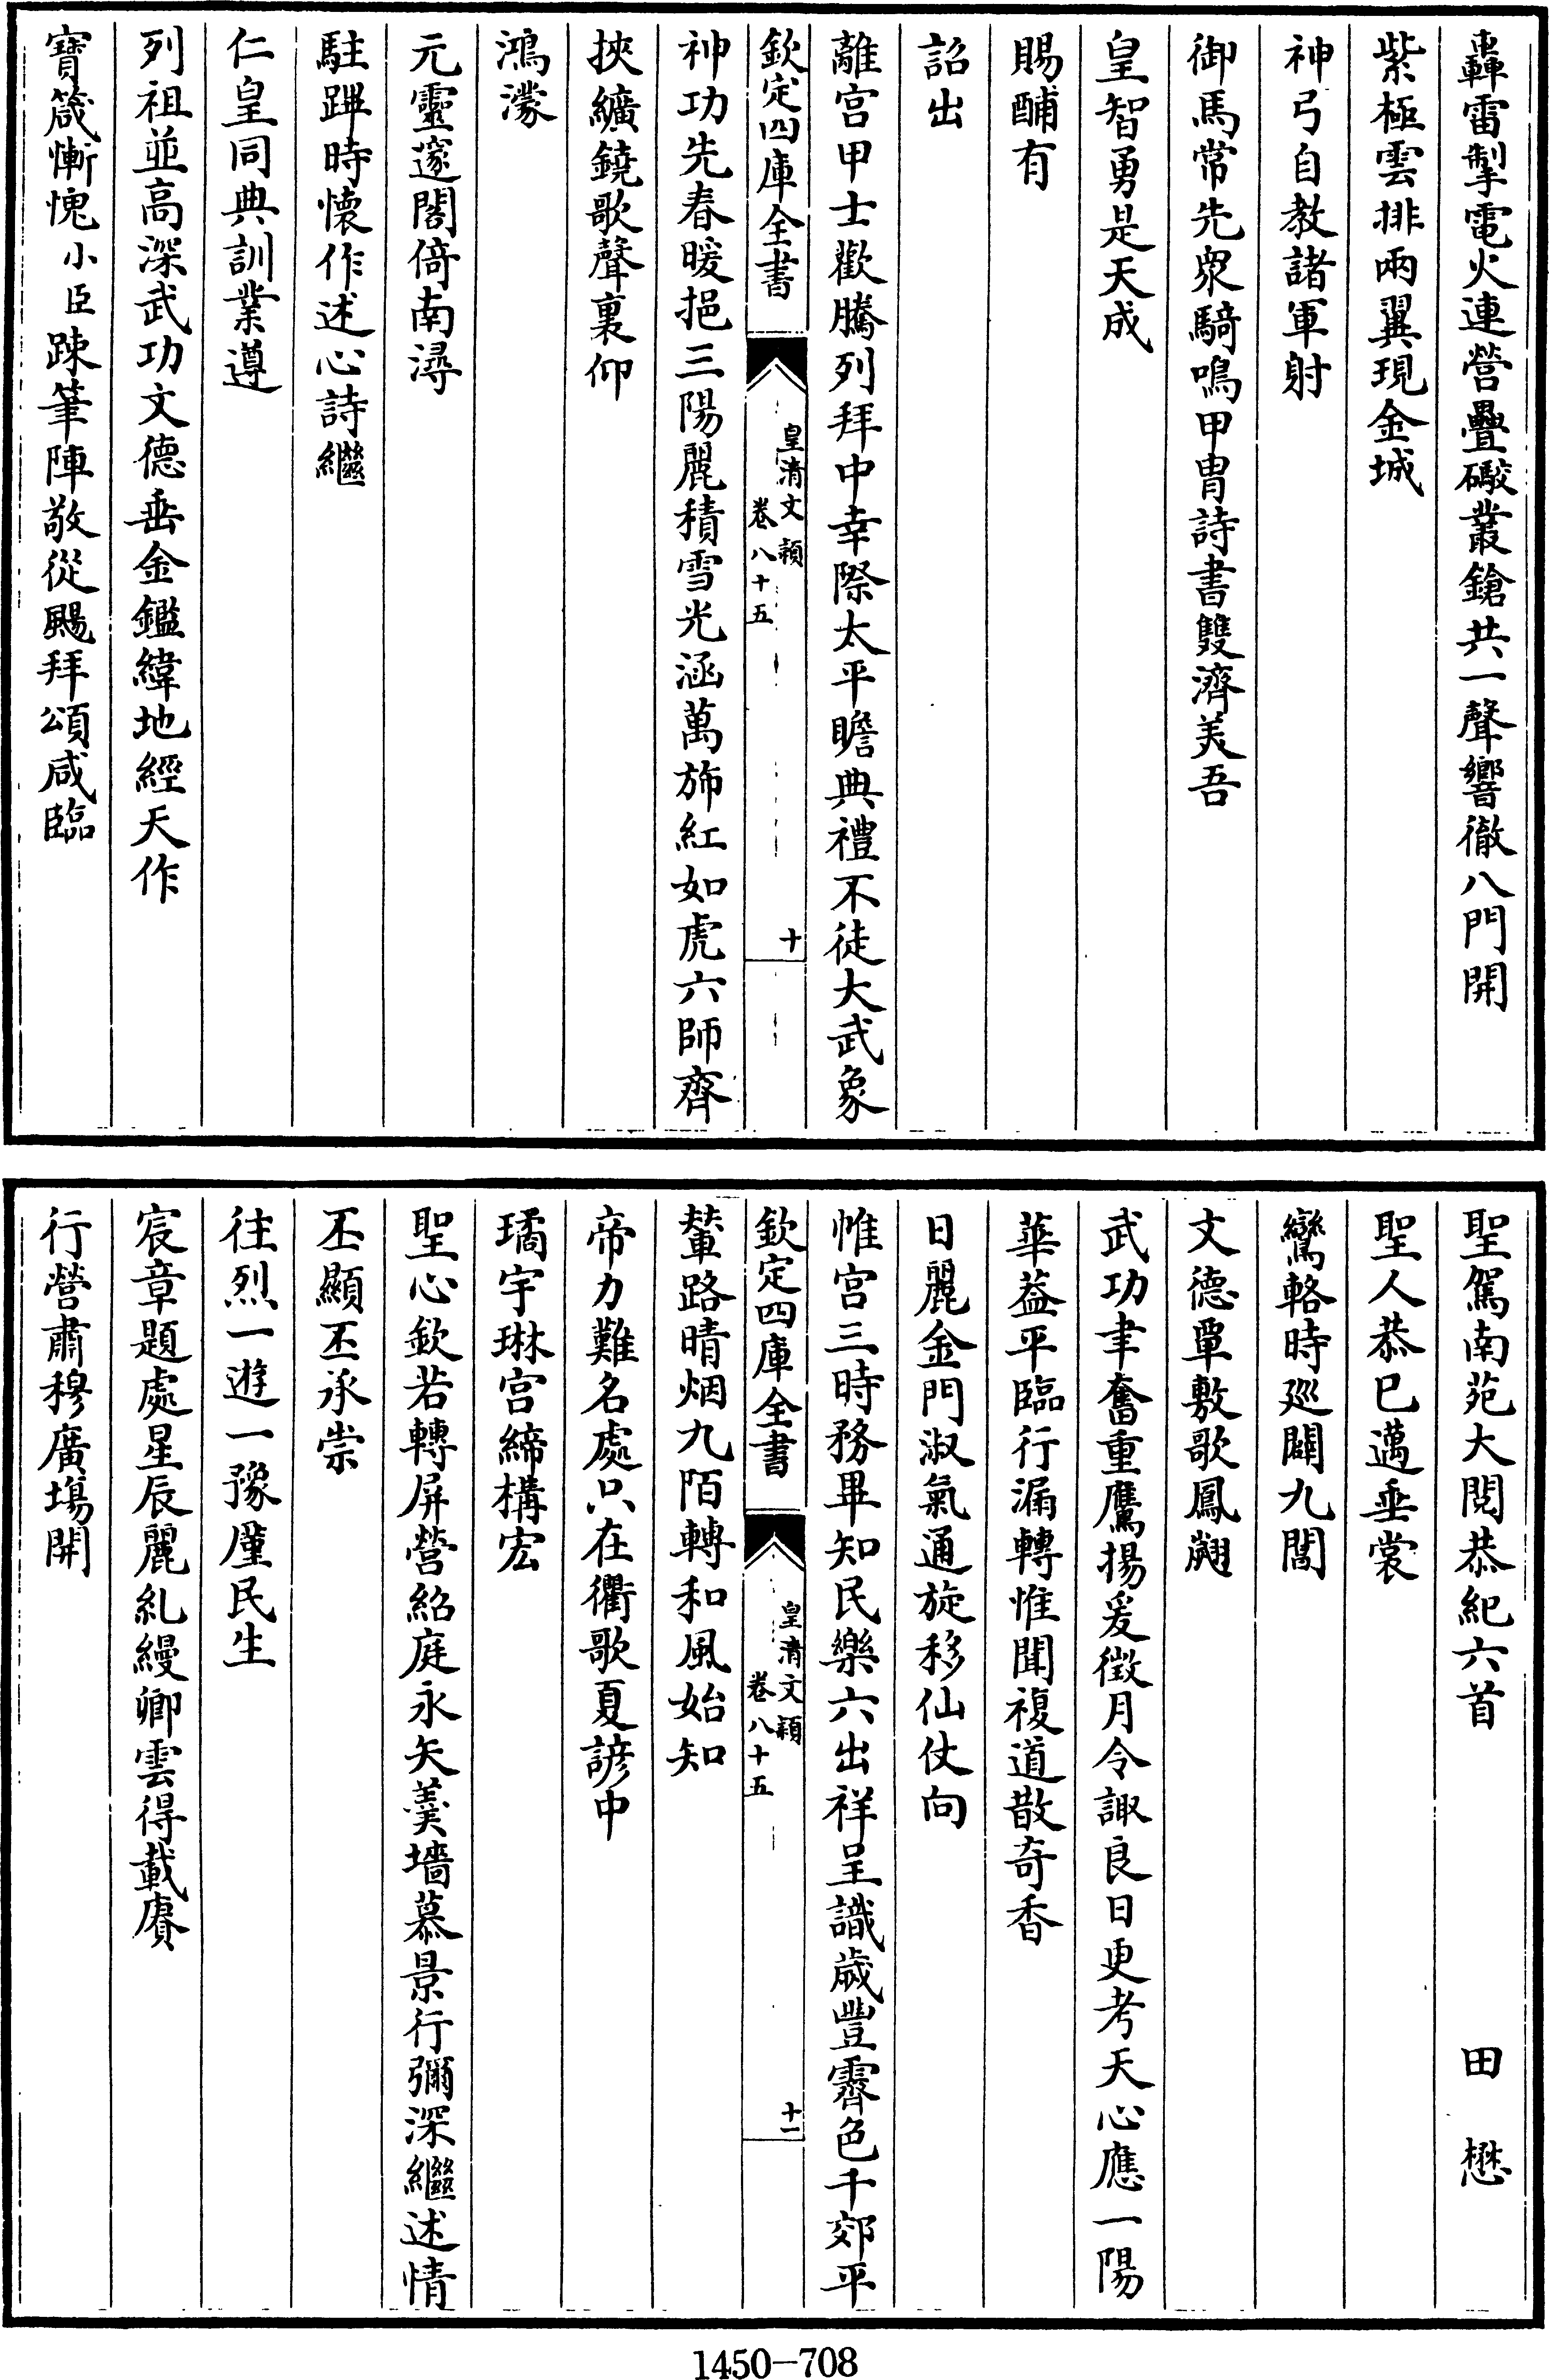 轟雷掣電火連營疊礮叢鎗共一聲響徹八門開
紫極雲排兩翼現金城
神弓自教諸軍射
御馬常先衆騎鳴甲胄詩書雙濟美吾
皇智勇是天成
賜酺有
詔出
離宫甲士歡騰列拜中幸際太平瞻典禮不徒大武象
欽定四庫全書
皇清文穎
卷八十五
十
神功先春暖挹三陽麗積雪光涵萬斾紅如虎六師齊
挾纊鐃歌聲裏仰
鴻濛
元靈邃閣倚南潯
駐蹕時懷作述心詩繼
仁皇同典訓業遵
列祖並高深武功文德垂金鑑緯地經天作
寶箴慚愧小臣踈筆陣敬從颺拜頌咸臨
聖駕南苑大閱恭紀六首 田懋
聖人恭巳邁垂裳
鸞輅時廵闢九閶
文德覃敷歌鳳翽
武功聿奮重鷹揚爰徴月令諏良日更考天心應一陽
華葢平臨行漏轉惟聞複道散奇香
日麗金門淑氣通旋移仙仗向
惟宫三時務畢知民樂六出祥呈識歲豐霽色千郊平
欽定四庫全書
皇清文穎
卷八十五
十一
輦路晴烟九陌轉和風始知
帝力難名處只在衢歌夏諺中
璚宇琳宫締構宏
聖心欽若轉屏營紹庭永矢羹墻慕景行彌深繼述情
丕顯丕承崇
往烈一遊一豫廑民生
宸章題處星辰麗糺縵卿雲得載賡
行營肅穆廣塲開
1450—708